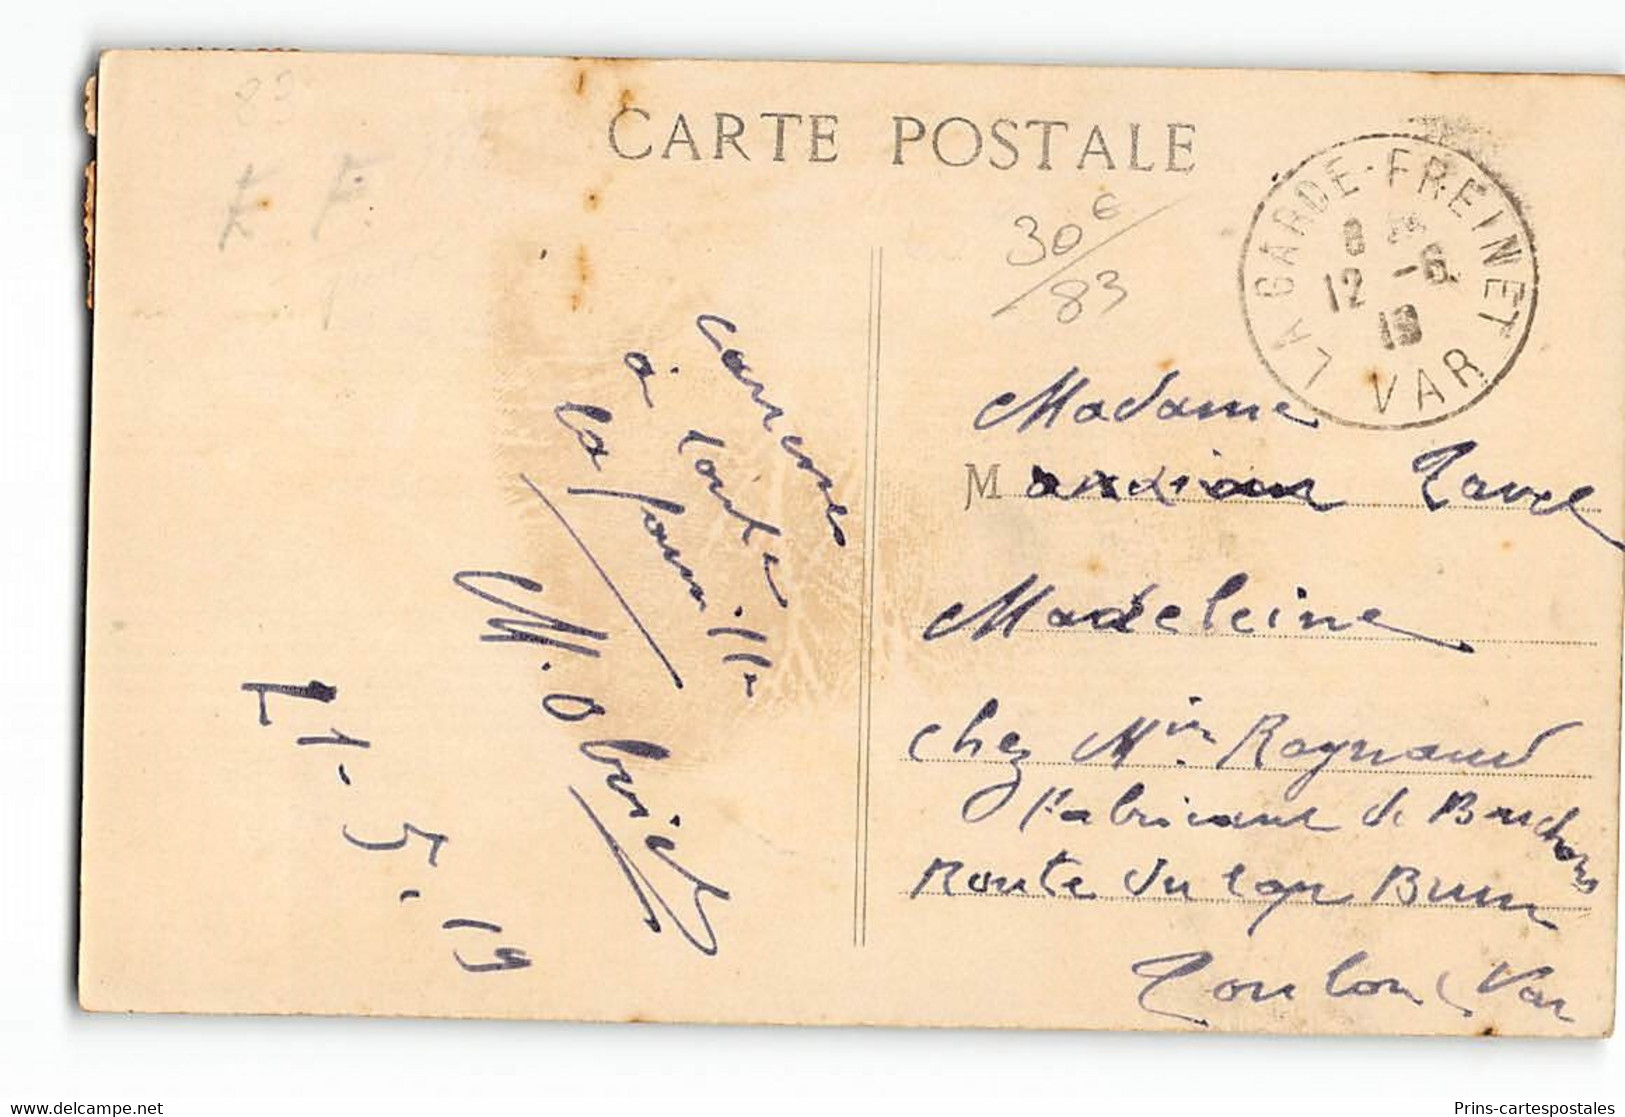 CARTE POSTALE
LA GARDE-FREINET
8
12 -6
19
VAR
30€
83
Caresses
à toute
la famille
M. Obrich
21-5-19
Madame
M Tavel
Madeleine
chez Mlle Raynaud
Fabricant de Bouchons
Route du Cap Brun
Toulon Var
www.delcampe.net
Prins-cartespostales